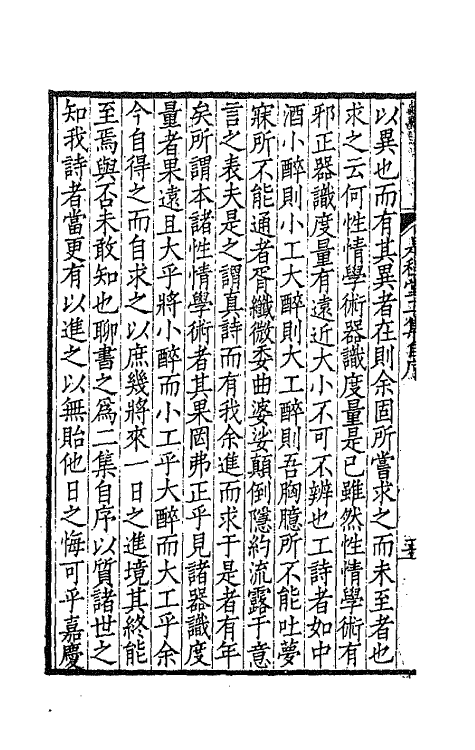 以異也而有其異者在則余固所嘗求之而未至者也
求之云何性情學術器識度量是已雖然性情學術有
邪正器識度量有遠近大小不可不辨也工詩者如中
酒小醉則小工大醉則大工醉則吾胸臆所不能吐夢
寐所不能通者胥纖微委曲婆娑顛倒隱約流露于意
言之表夫是之謂真詩而有我余進而求于是者有年
矣所謂本諸性情學術者其果罔弗正乎見諸器識度
量者果遠且大乎將小醉而小工乎大醉而大工乎余
今自得之而自求之以庶幾將來一日之進境其終能
至焉與否未敢知也聊書之爲二集自序以質諸世之
知我詩者當更有以進之以無貽他日之悔可乎嘉慶